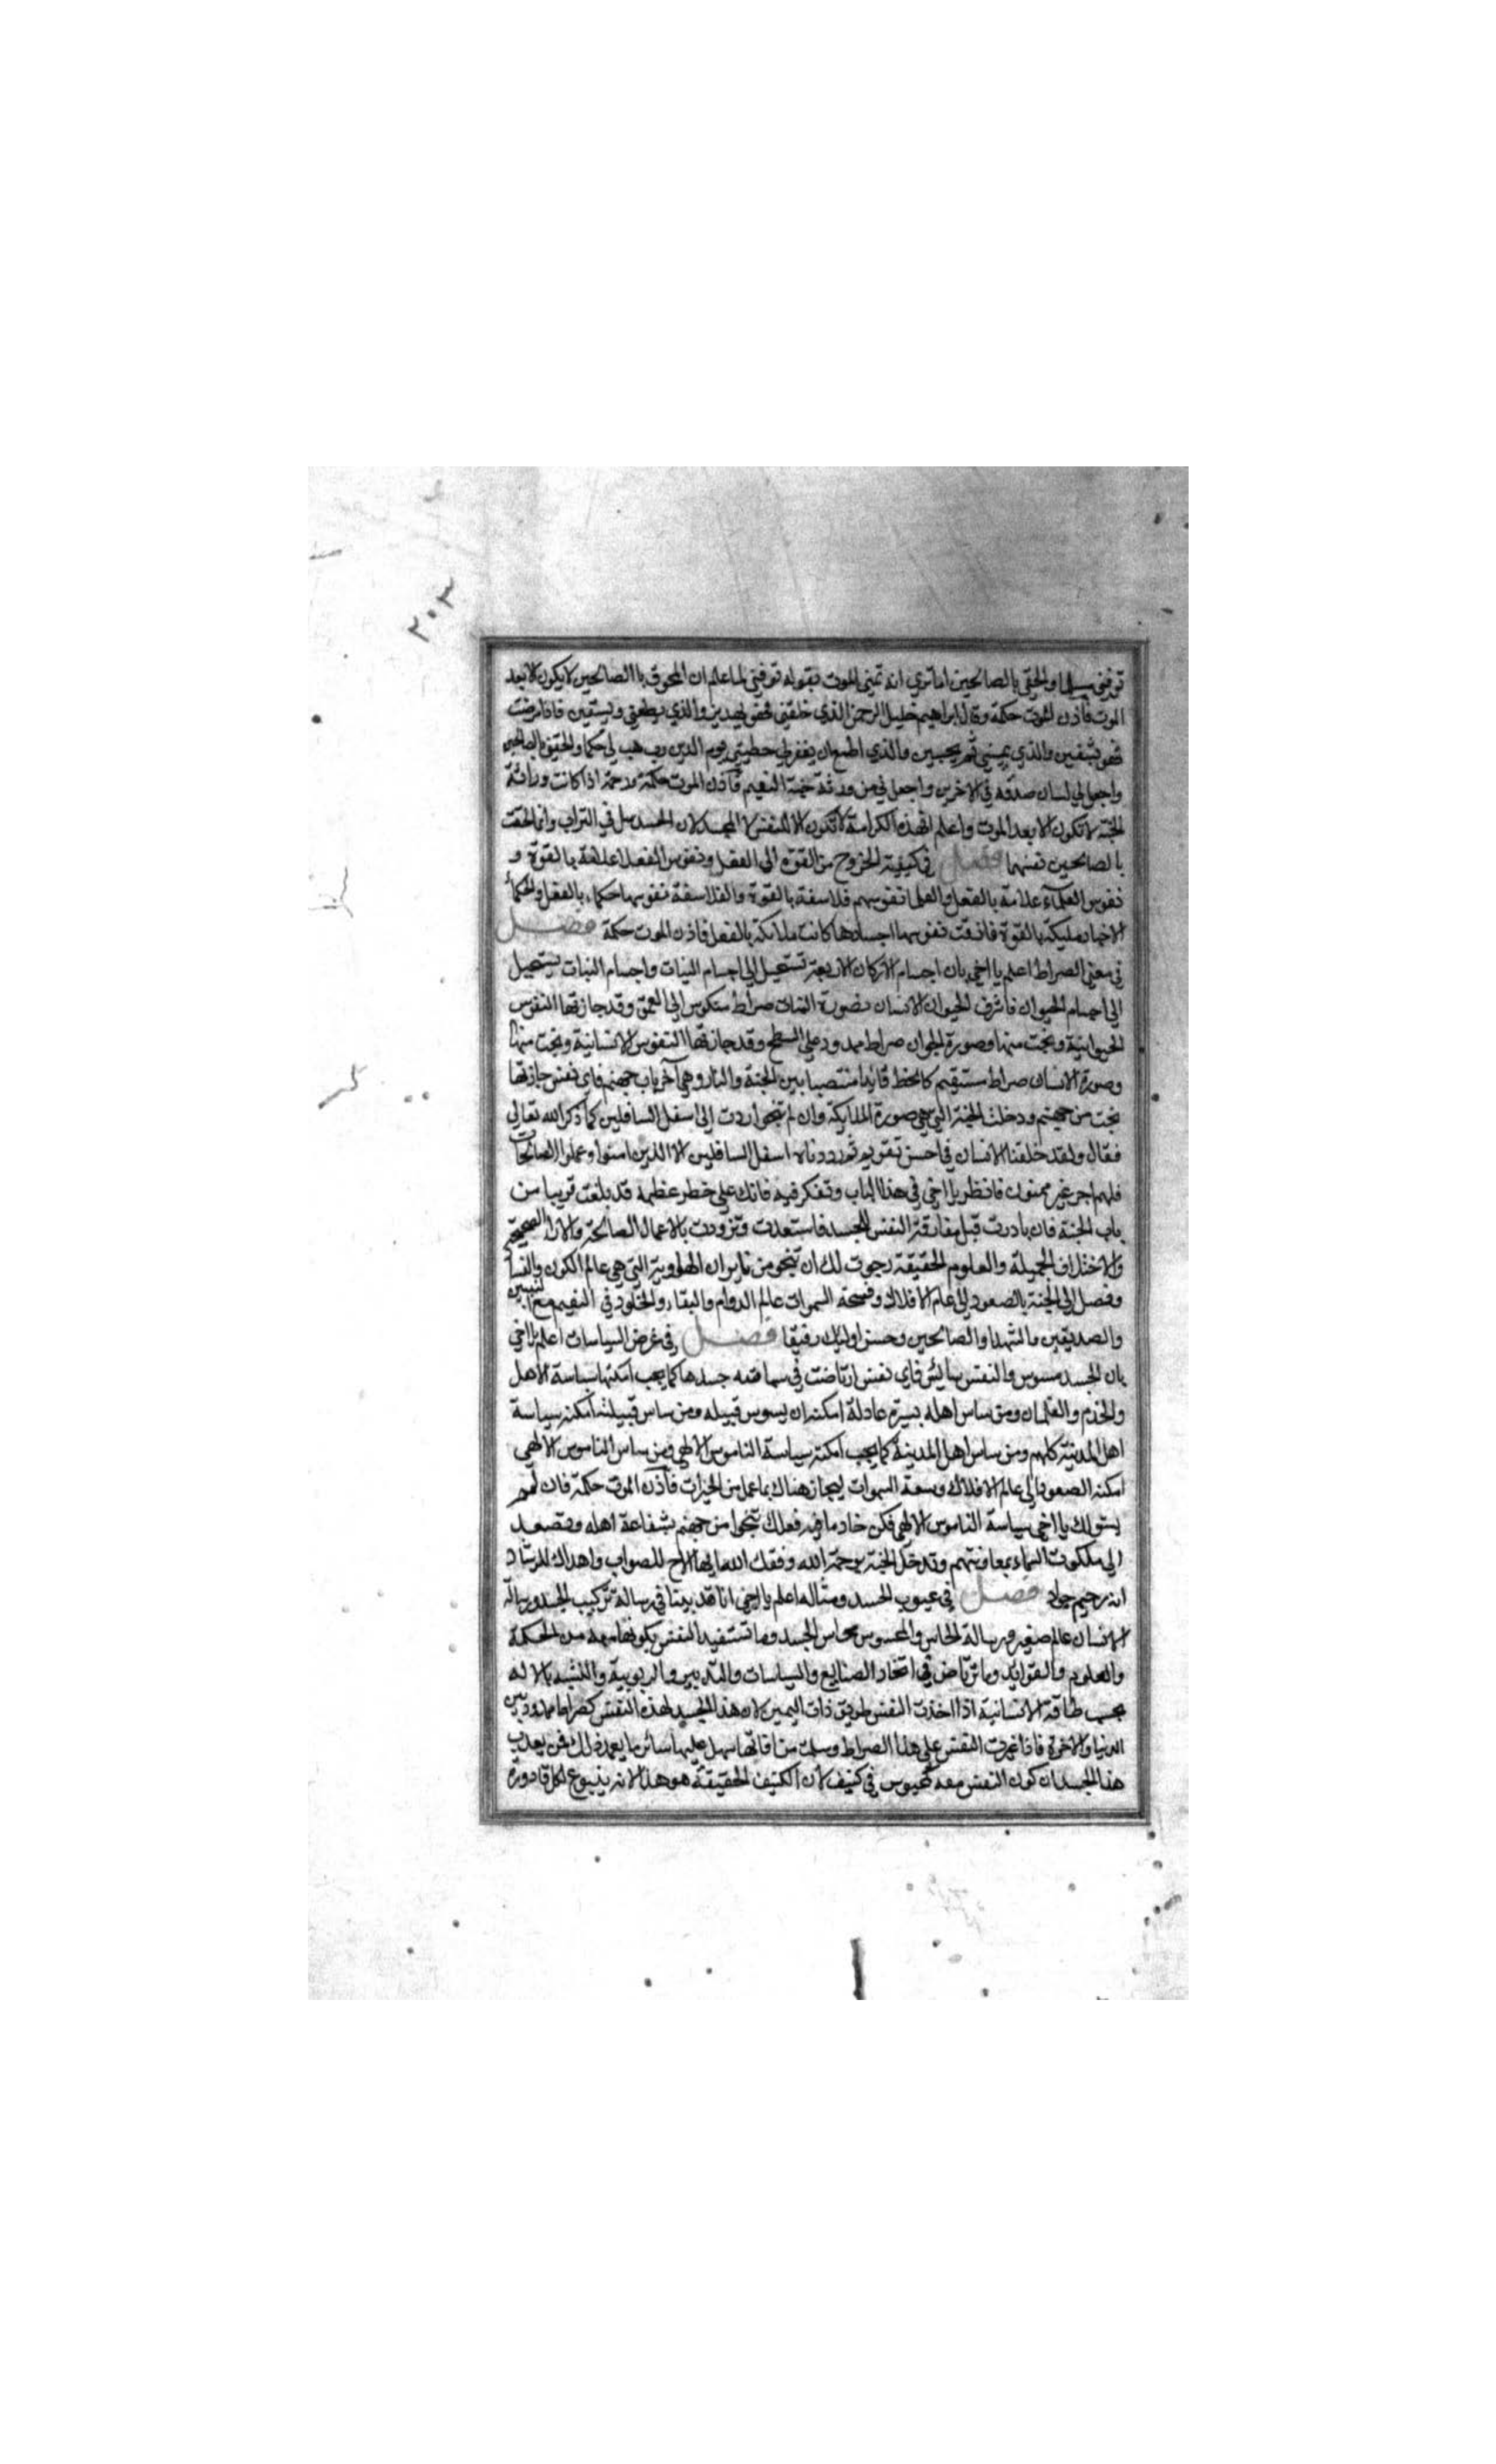 ٢٠٣
توفني مسلما والحقني بالصالحين اما تري انه تمني الموت بقوله توفني لما علم ان اللحوق باالصالحين لا يكون الا بعد
الموت فاذن الموت حكمة وقال ابراهيم خليل الرحمن الذي خلقني فهو يهدين والذي يطعمني ويسقين فاذا مرضت
فهو يشفين والذي يميتني ثم يحيين والذي اطمع ان يغفر لي خطيئتي يوم الدين رب هب لي حكما والحقني بالصالحين
واجعل لي لسان صدق في الاخرين واجعلني من ورثة جنة النعيم فاذن الموت حكمة ورحمة اذا كانت وراثة
الجنة لا تكون الا بعد الموت واعلم ان هذه الكرامة لا تكون الا للنفس لا للجسد لان الجسد يبلى في التراب وانما لحقت
بالصالحين نفسهما فصل في كيفية الخروج من القوة الى الفعل ونفوس العقلا علامة بالقوة و
نفوس العلمآء علامة بالفعل والعلما نفوسهم فلاسفة بالقوة والفلاسفة نفوسها حكماء بالفعل والحكماء
الاخيار مليكة بالقوة فاذا فارقت نفوسها اجسادها كانت ملائكة بالفعل فاذن الموت حكمة فصل
في معني الصراط اعلم يا اخي بان اجسام الاركان الاربعة تستحيل الي اجسام النبات واجسام النبات يستحيل
الي اجسام الحيوان فاشرف الحيوان الانسان فصورة النبات صراط منكوس الي العمق وقد جازتها النفوس
الحيوانية ونجت منها وصورة الحيوان صراط ممدود علي السطح وقد جازتها النفوس الانسانية ونجت منها
وصورة الانسان صراط مستقيم كالخط قائما منتصبا بين الجنة والنار وهي آخر باب جهنم فاي نفس جازتها
نجت من جهنم ودخلت الجنة التي هي صورة الملايكة وان لم تنجوا ردت إلى اسفل السافلين كما ذكر الله تعالي
فقال ولقد خلقنا الانسان في احسن تقويم ثم رددناه اسفل السافلين الا الذين امنوا وعملوا الصالحات
فلهم اجر غير ممنون فانظر يا اخي في هذا الباب وتفكر فيه فانك علي خطر عظيم قد بلغت قريبا من
باب الجنة فان بادرت قبل مفارقة النفس الجسد فاستعدت وتزودت بالاعمال الصالحة والآراء الصحيحة
والاخلاق الجميلة والعلوم الحقيقة رجوت لك ان تنجو من نايران الهاوية التي هي عالم الكون والفساد
وتصل إلى الجنة بالصعود إلى عالم الافلاك وفسحة السموات عالم الدوام والبقاء والخلود في النعيم مع النبيين
والصديقين والشهدا والصالحين وحسن اوليك رفيقا فصل في غرض السياسات اعلم يا اخي
بان الجسد مسوس والنفس سائس فاي نفس ارتاضت في سياسة جسدها كما يجب امكنها سياسة الاهل
والخدم والغلمان ومن ساس اهله بسيرة عادلة امكنه ان يسوس قبيله ومن ساس قبيلته امكنه سياسة
اهل المدينة كلهم ومن ساس اهل المدينة كما يجب امكنه سياسة الناموس الالهي ومن ساس الناموس الالهي
امكنه الصعود الى عالم الافلاك وسعة السموات ليجاز هناك بما عمل من الخيرات فاذن الموت حكمة فان لم
يستو لك يا اخي سياسة الناموس الالهي فكن خادما فيه فعلك تنجوا من جهنم بشفاعة اهله وتصعد
الى ملكوت السماء بمعاونتهم وتدخل الجنة برحمة الله وفقك الله ايها الاخ للصواب واهداك للرشاد
انه رحيم جواد فصل في عيوب الجسد ومثاله اعلم يا اخي انا قد بينا في رسالة تركيب الجسد ورسالة
الانسان عالم صغير ورسالة الحاس والمحسوس محاسن الجسد وما تستفيد النفس بكونها معه من الحكمة
والعلوم والفوايد وما ترتاض في اتخاد الصنايع والسياسات والتدبير والربوبية والتشبه بالاله
بحسب طاقة الانسانية اذا اخذت النفس طريق ذات اليمين لان هذا الجسد لهذه النفس كصراط ممدود بين
الدنيا والاخرة فاذا عبرت النفس علي هذا الصراط وسلمت من افاتها سهل عليها سائر ما بعد ذلك فمن عيوب
هذا الجسد ان كون النفس معه كمحبوس في كنيف لان الكنيف الحقيقة هو هذا لانه ينبوع لكل قاذورة